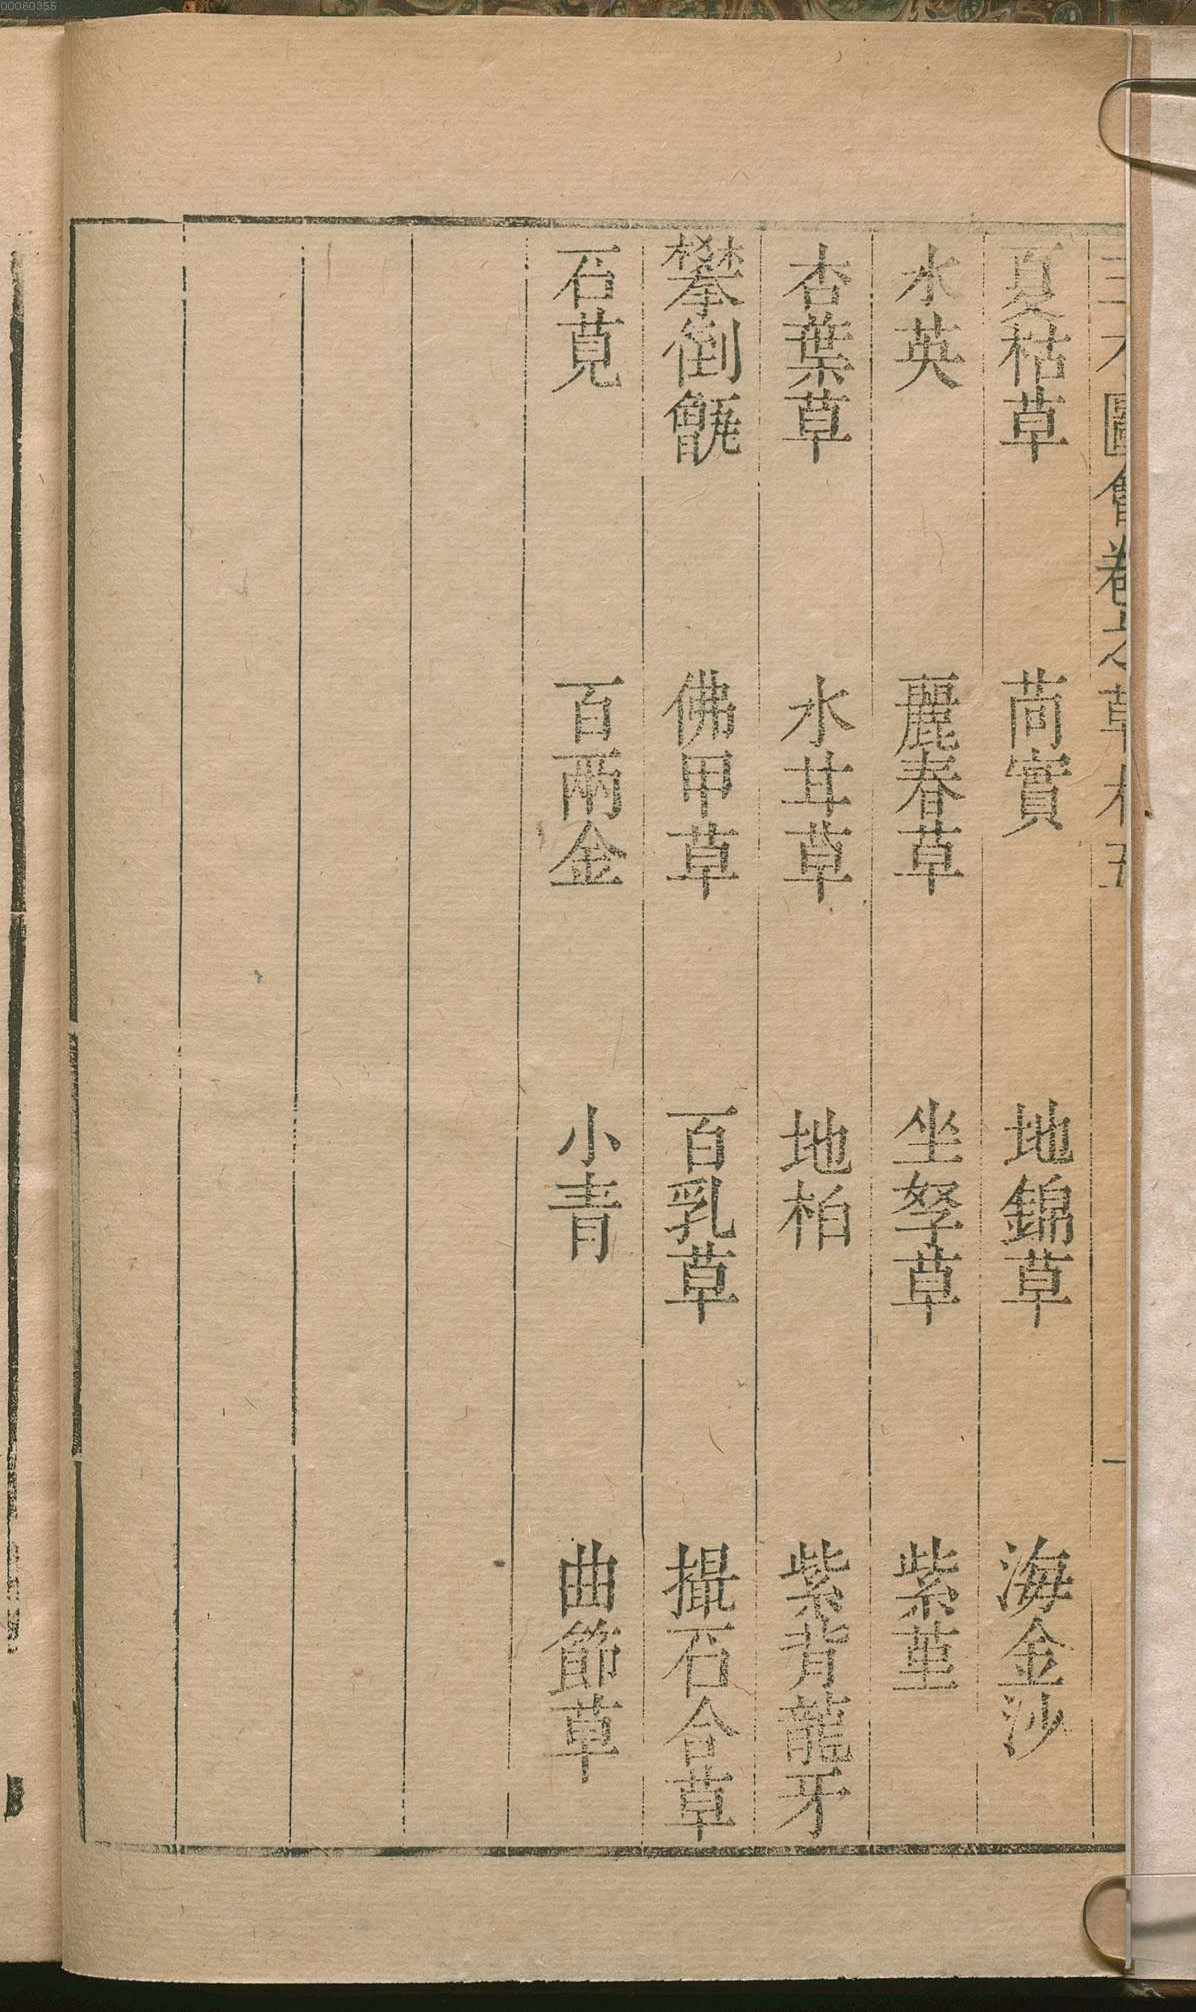 00060355
圖會卷之草木五
一
夏枯草 茼實 地錦草 海金沙
水英 麗春草 坐拏草 紫堇
杏葉草 水甘草 地柏 紫背龍牙
攀倒甑 佛甲草 百乳草 撮石合草
石莧 百兩金 小青 曲節草